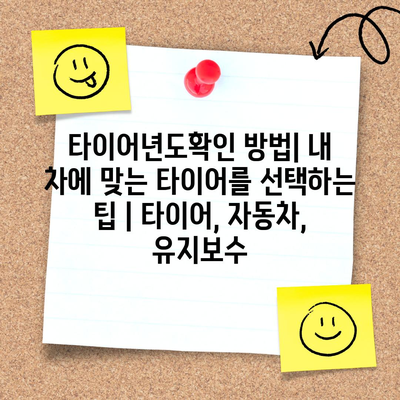 타이어년도확인 방법| 내
차에 맞는 타이어를 선택하는
팁 | 타이어, 자동차,
유지보수